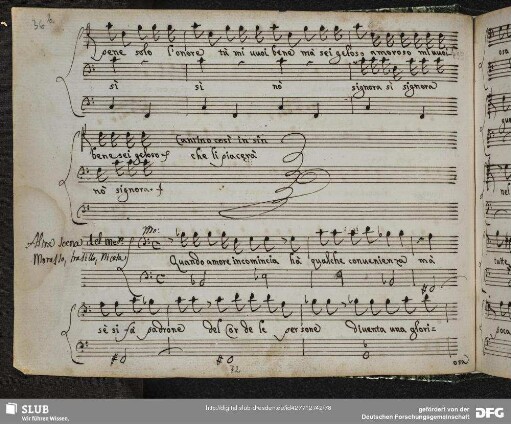 pene solo l'onore tù mi vuoi bene mà sei geloso amoroso mi vuoi
sì sì nò signora sì signora
bene sei geloso
Cantino così in sin
che li piacerà
nò signora.
Altra scena del
Quando amore incomincia hà qualche convenienza mà
sè si fà padrone del Cor de le persone diventa una glori-
osa
72
SLUB
Wir führen Wissen.
http://digital.slub-dresden.de/id427712742/78
gefördert von der
Deutschen Forschungsgemeinschaft
DFG